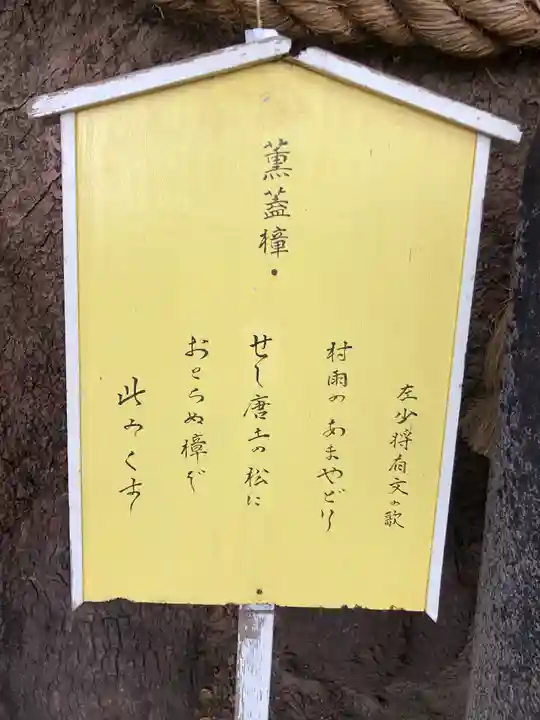 薫蓋樟・
左少将有文の歌
村雨のあまやどり
せし唐土の松に
おとらぬ樟ぞ
此のくす